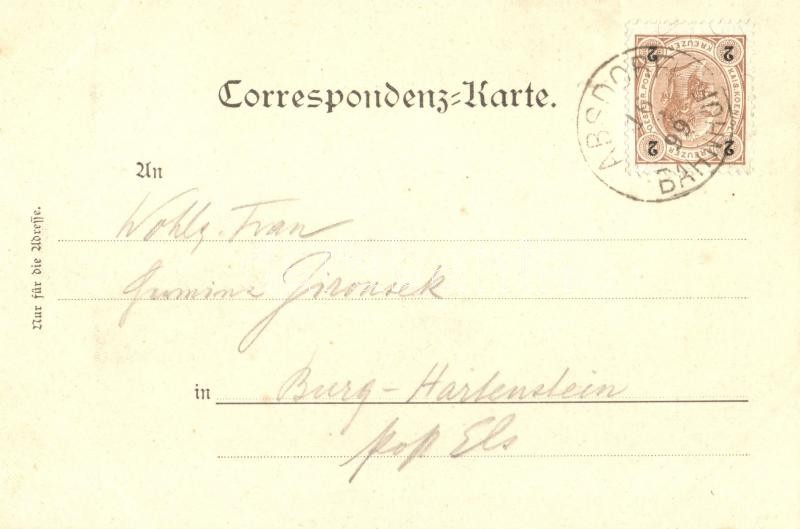 Correspondenz-Karte.
2 2
KAIS. KOENIGL. OESTERR. POST
KREUZER KREUZER
2 2
ABSDORF
BAHNHOF
99
An
Nur für die Adresse.
Wohlg. Frau
Jirousek
in Burg-Hartenstein
Post Els